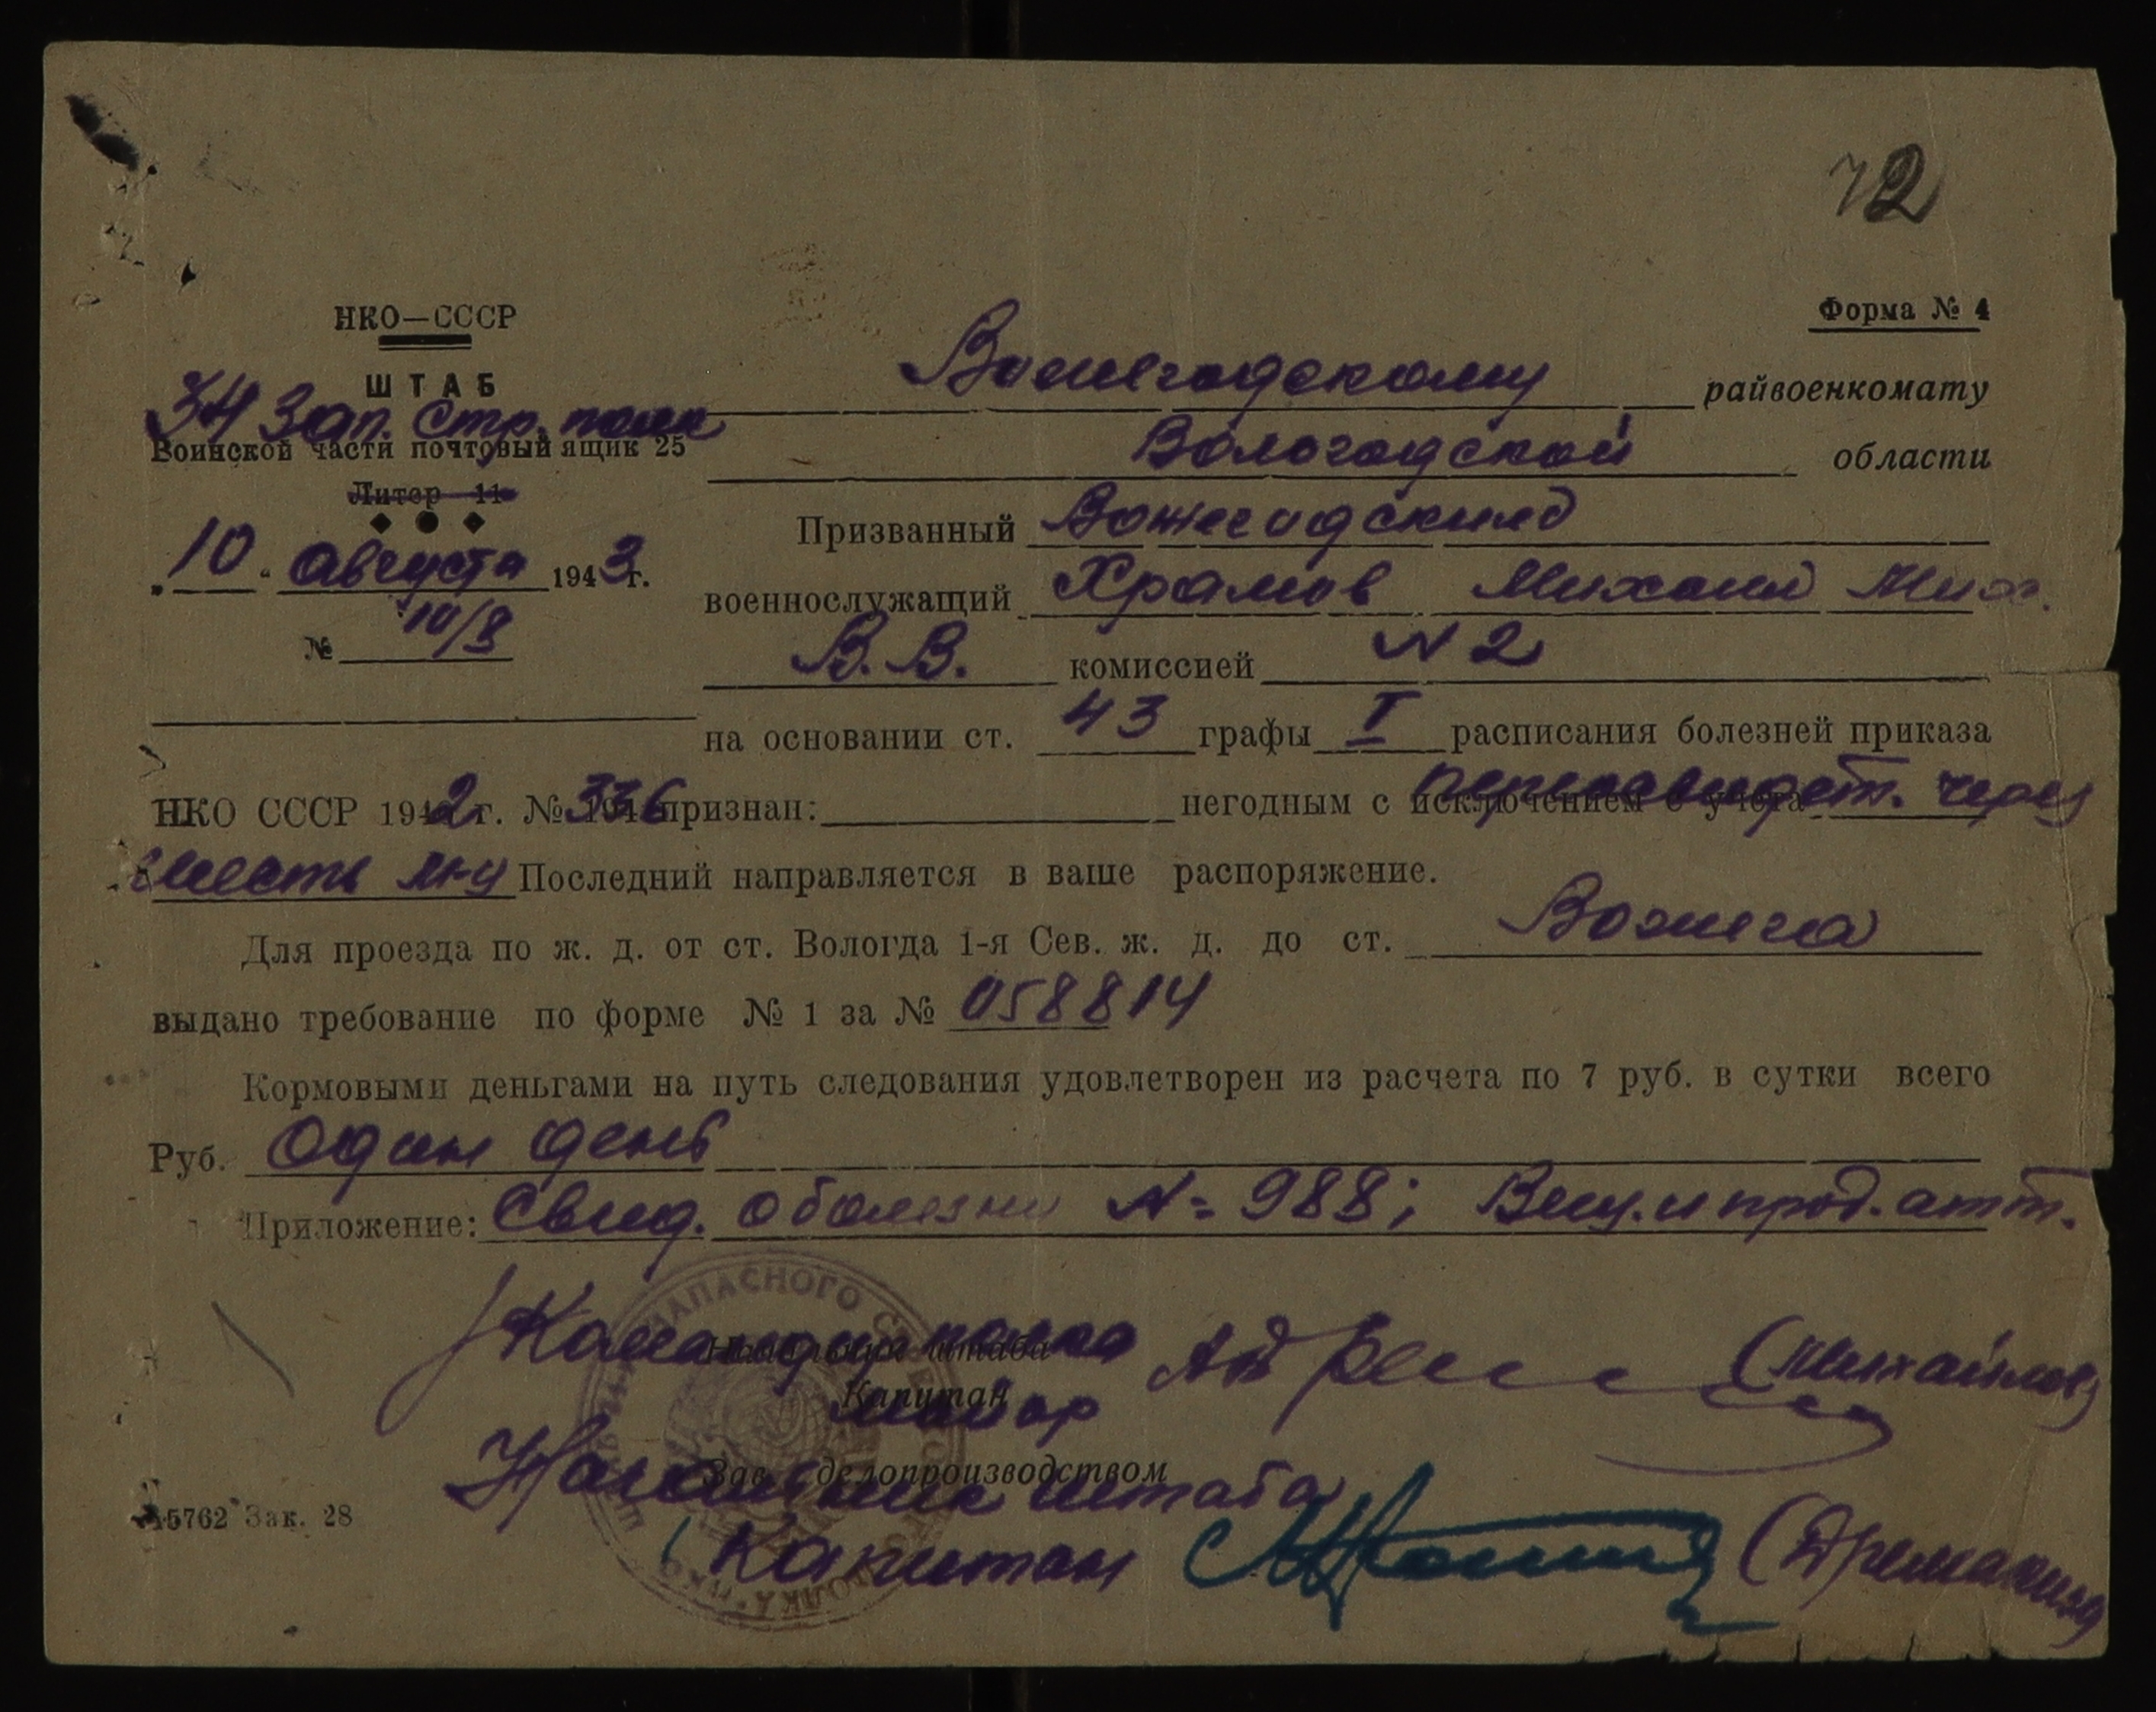 72
Форма № 4
НКО—СССР
ШТАБ
34 Зап. Стр. полк
Воинской части почтовый ящик 25
Литер 11
"10" Августа 1943 г.
№ 10/8
Вожегодскому райвоенкомату
Вологодской области
Призванный Вожегодским
военнослужащий Храмов Михаил Мих.
В.В. комиссией N 2
на основании ст. 43 графы I расписания болезней приказа
НКО СССР 1942 г. № 336 признан: негодным с исключением с учета переосвидет. через
шесть м-ц Последний направляется в ваше распоряжение.
Для проезда по ж. д. от ст. Вологда 1-я Сев. ж. д. до ст. Вожега
выдано требование по форме № 1 за № 058814
Кормовыми деньгами на путь следования удовлетворен из расчета по 7 руб. в сутки всего
Руб. Один день
Приложение: Свид. о болезни N= 988; Вещ. и прод. атт.
Командир полка
Начальник штаба
Капитан
майор (Михайлов)
Зав. делопроизводством
Начальник штаба
Капитан (Дремакин)
ЗАПАСНОГО
ПОЛКА * НКО
5762 Зак. 28